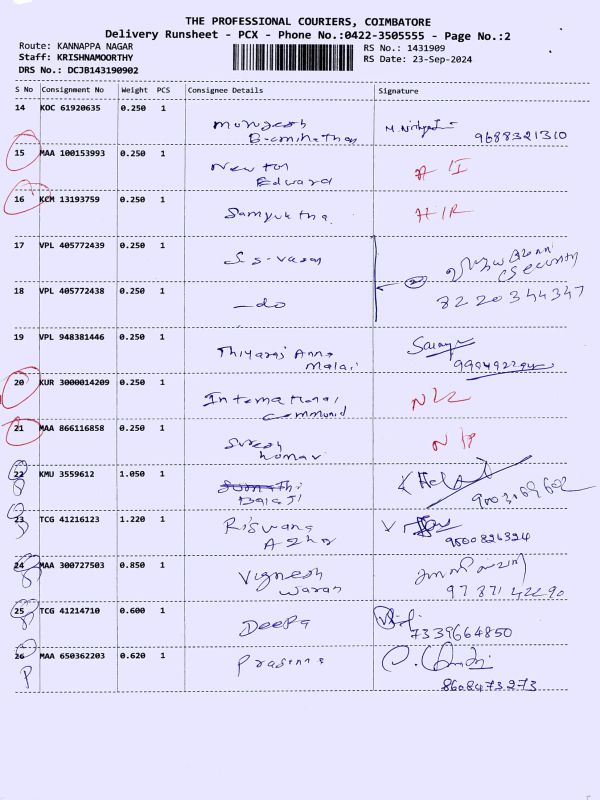 THE PROFESSIONAL COURIERS, COIMBATORE
Delivery Runsheet - PCX - Phone No.:0422-3505555 - Page No.:2
Route: KANNAPPA NAGAR
RS No.: 1431909
Staff: KRISHNAMOORTHY
RS Date: 23-Sep-2024
DRS No.: DCJB143190902
S No Consignment No Weight PCS Consignee Details Signature
14 KOC 61920635 0.250 1
9688321310
15 MAA 100153993 0.250 1
Newton
Edward
16 KCM 13193759 0.250 1
Samyuktha.
17 VPL 405772439 0.250 1
S.s-vasan
Security
18 VPL 405772438 0.250 1
-do
8220344347
19 VPL 948381446 0.250 1
Thiyaraj Anna
malai
20 KUR 3000014209 0.250 1
International
21 MAA 866116858 0.250 1
Suresh
kumar
22 KMU 3559612 1.050 1
Balaji
23 TCG 41216123 1.220 1
Riswana
9500826324
24 MAA 300727503 0.850 1
Vignesh
waran
25 TCG 41214710 0.600 1
Deepa
7339664850
26 MAA 650362203 0.620 1
Prasanna
P
8608473273